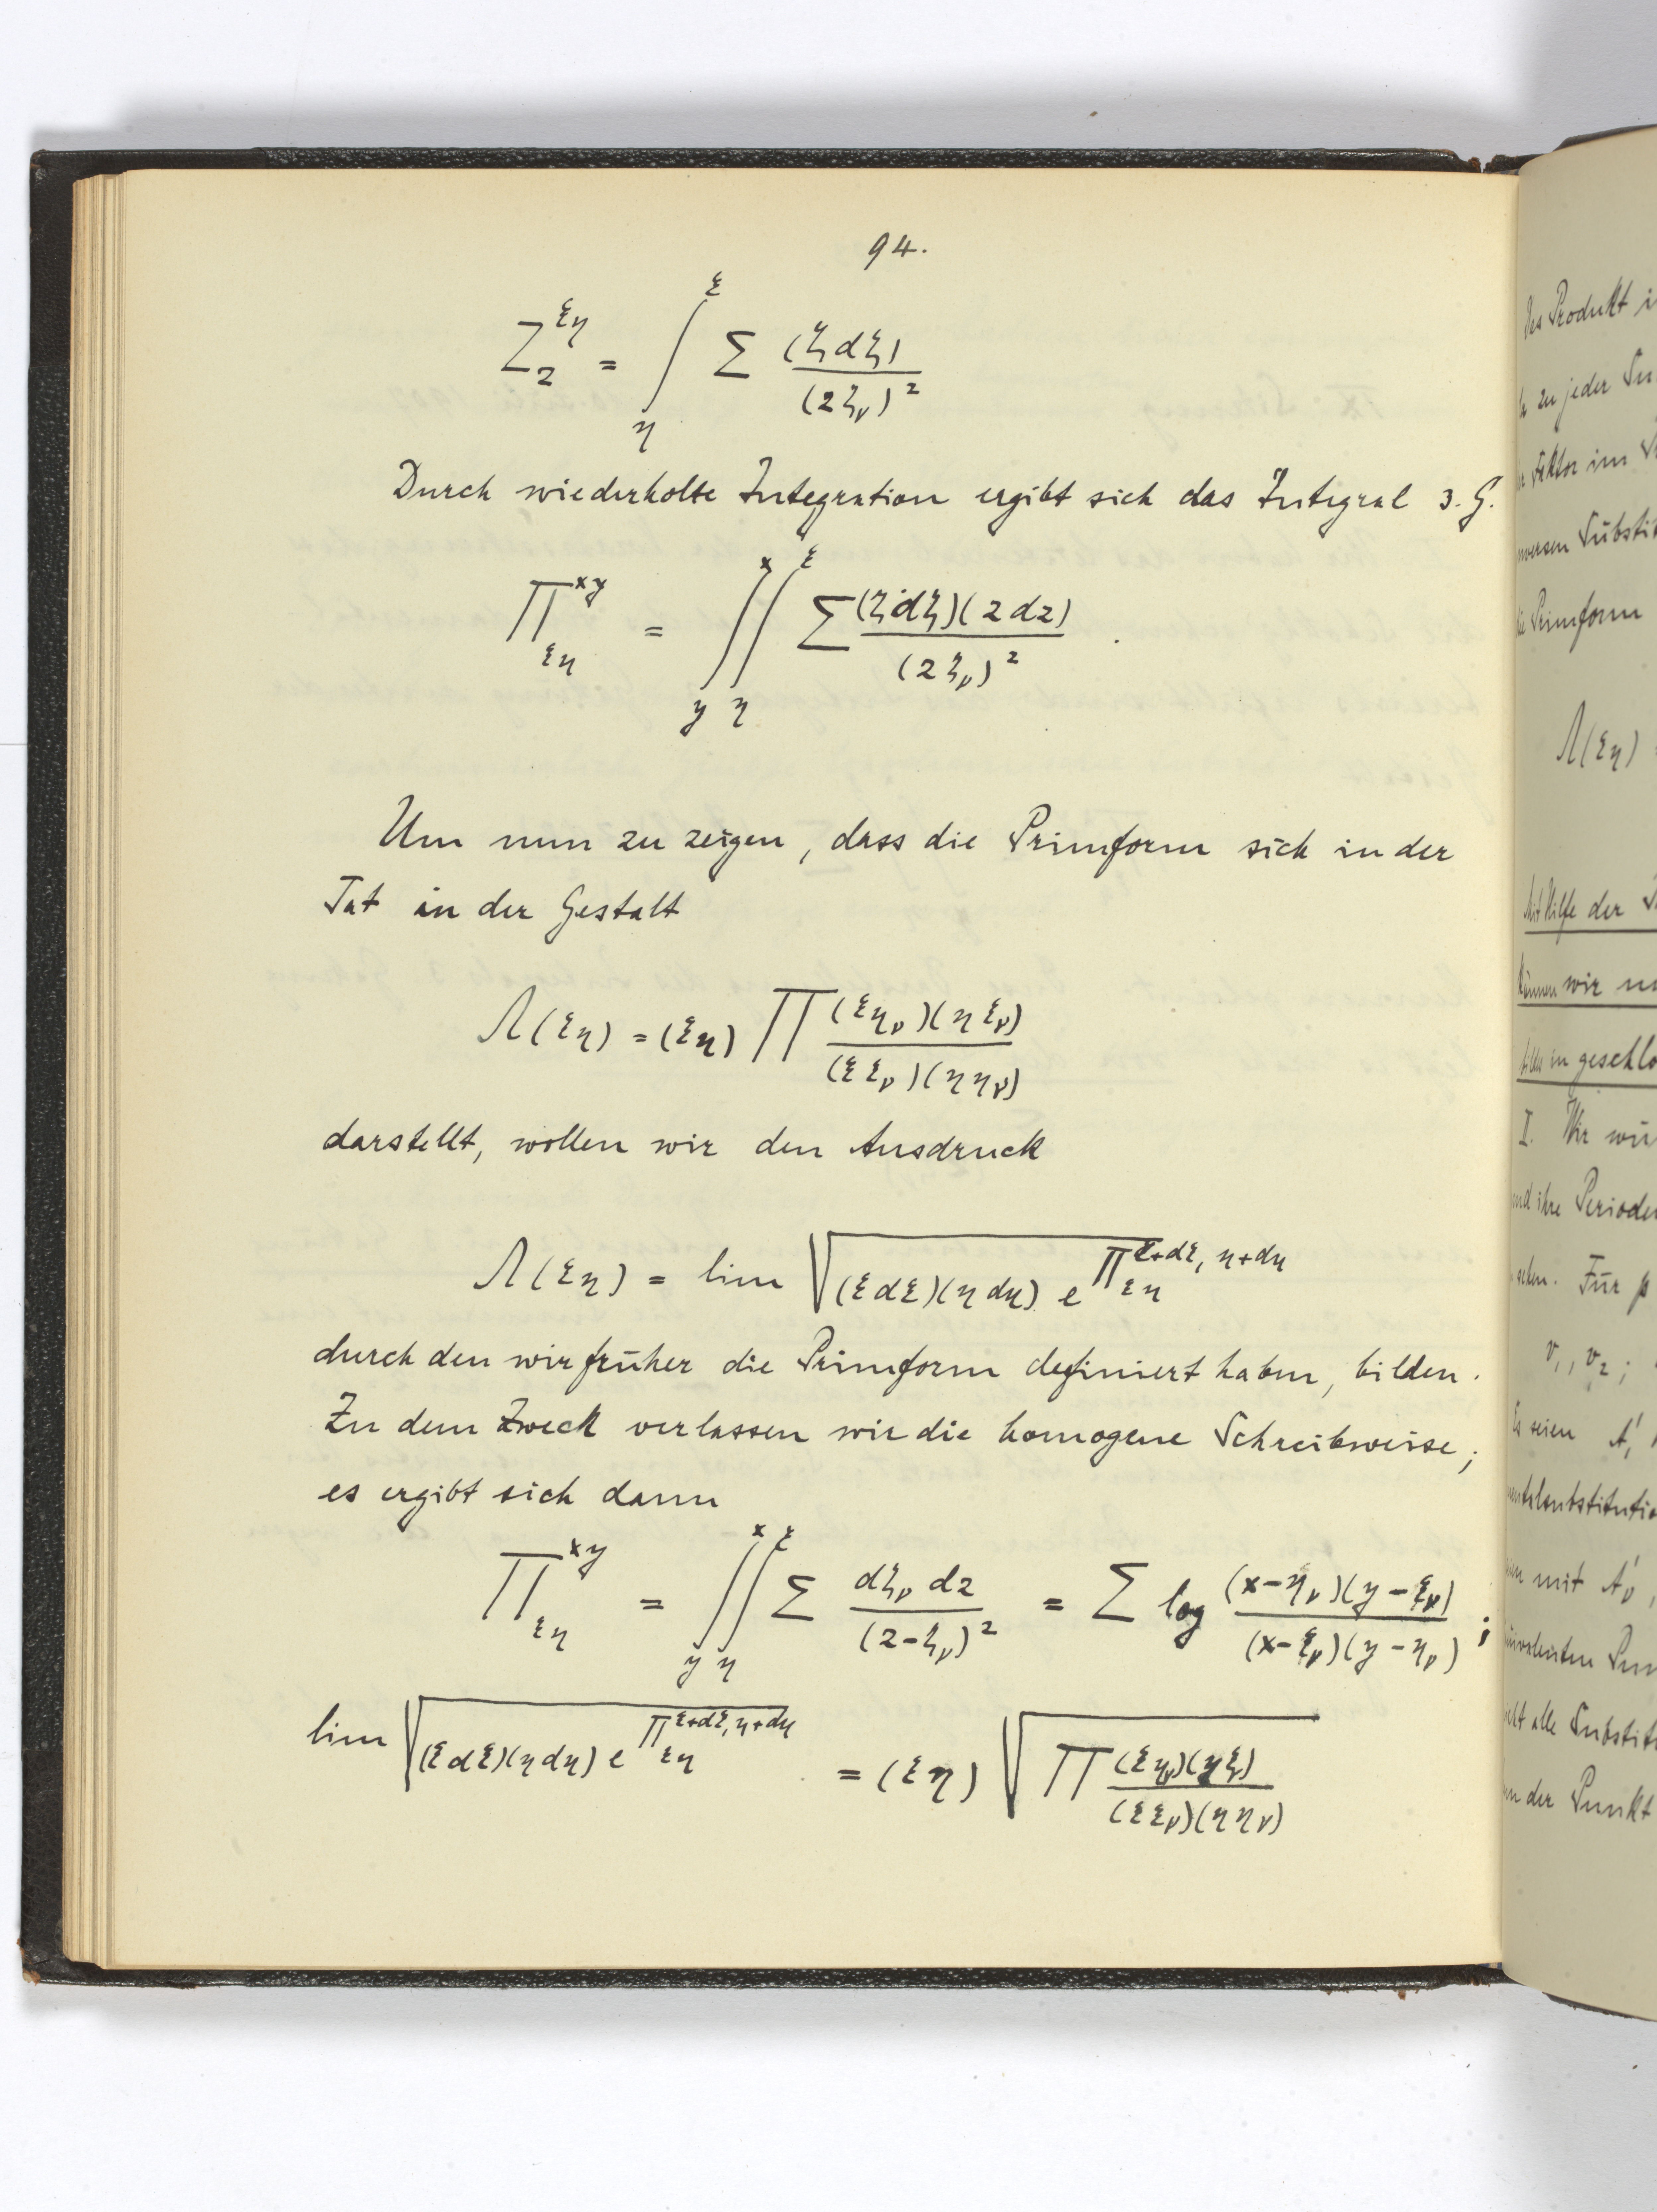 94.
Z_2^{ξη} = ∫_η^ξ Σ (ζdζ) / (zζ_ν)^2
Durch wiederholte Integration ergibt sich das Integral 3. G.
Π_{ξη}^{xy} = ∫_y^x ∫_η^ξ Σ (ζdζ)(zdz) / (zζ_ν)^2 .
Um nun zu zeigen, dass die Primform sich in der
Tat in der Gestalt
Λ(ξη) = (ξη) Π (ξη_ν)(ηξ_ν) / (ξξ_ν)(ηη_ν)
darstellt, wollen wir den Ausdruck
Λ(ξη) = lim √((ξdξ)(ηdη) e^{Π_{ξη}^{ξ+dξ, η+dη}})
durch den wir früher die Primform definiert haben, bilden.
Zu dem Zweck verlassen wir die homogene Schreibweise;
es ergibt sich dann
Π_{ξη}^{xy} = ∫_y^x ∫_η^ξ Σ dζ_ν dz / (z-ζ_ν)^2 = Σ log (x-η_ν)(y-ξ_ν) / (x-ξ_ν)(y-η_ν) ;
lim √((ξdξ)(ηdη) e^{Π_{ξη}^{ξ+dξ, η+dη}}) = (ξη) √(Π (ξη_ν)(ηξ) / (ξξ_ν)(ηη_ν))
des Produkt
zu jeder
im
Primform
Λ(ξη)
Mit Hilfe der
können wir
in
I. Wir
und ihre Perioden
Für p
v_1, v_2;
Es seien A'_1
mit A'_ν,
alle
der Punkt